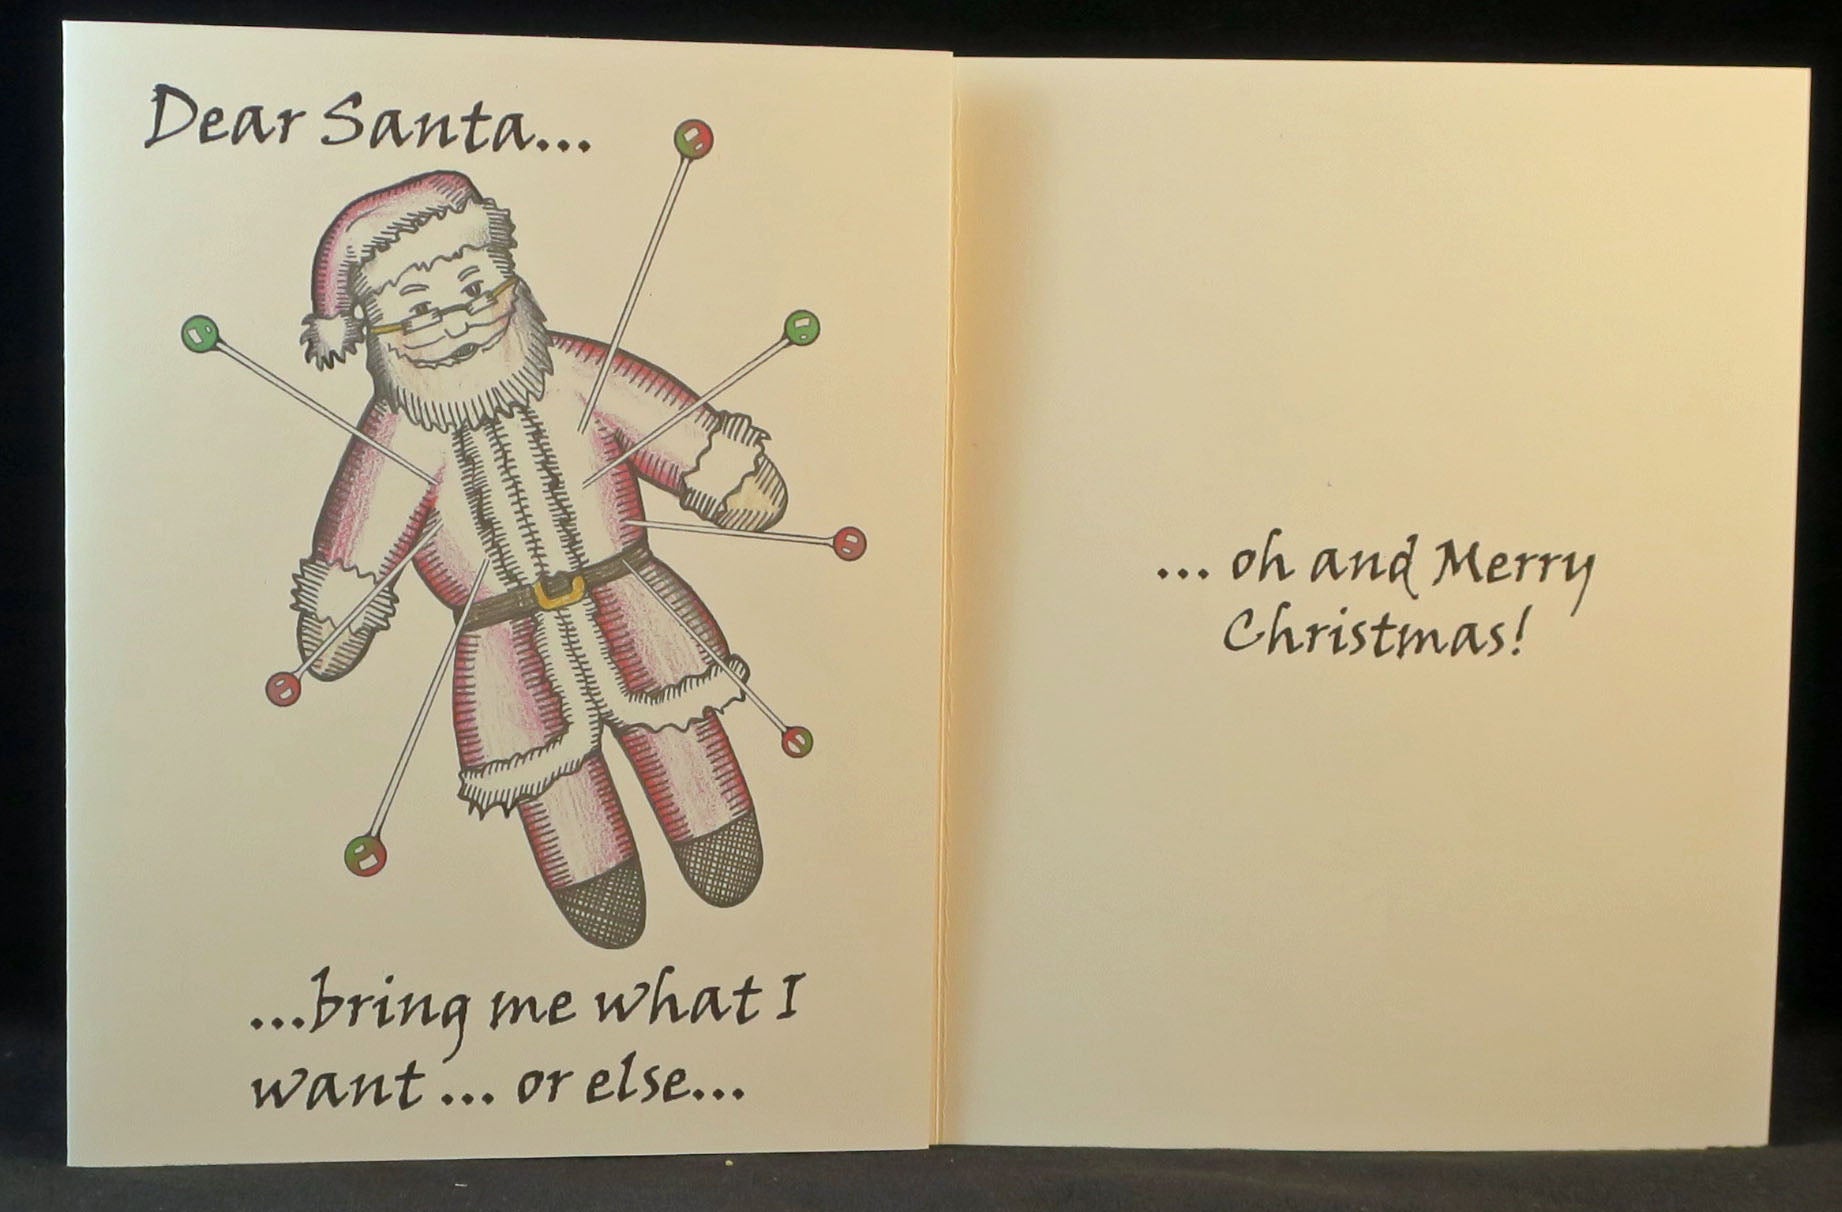 Dear Santa...
...bring me what I
want ... or else...
... oh and Merry
Christmas!